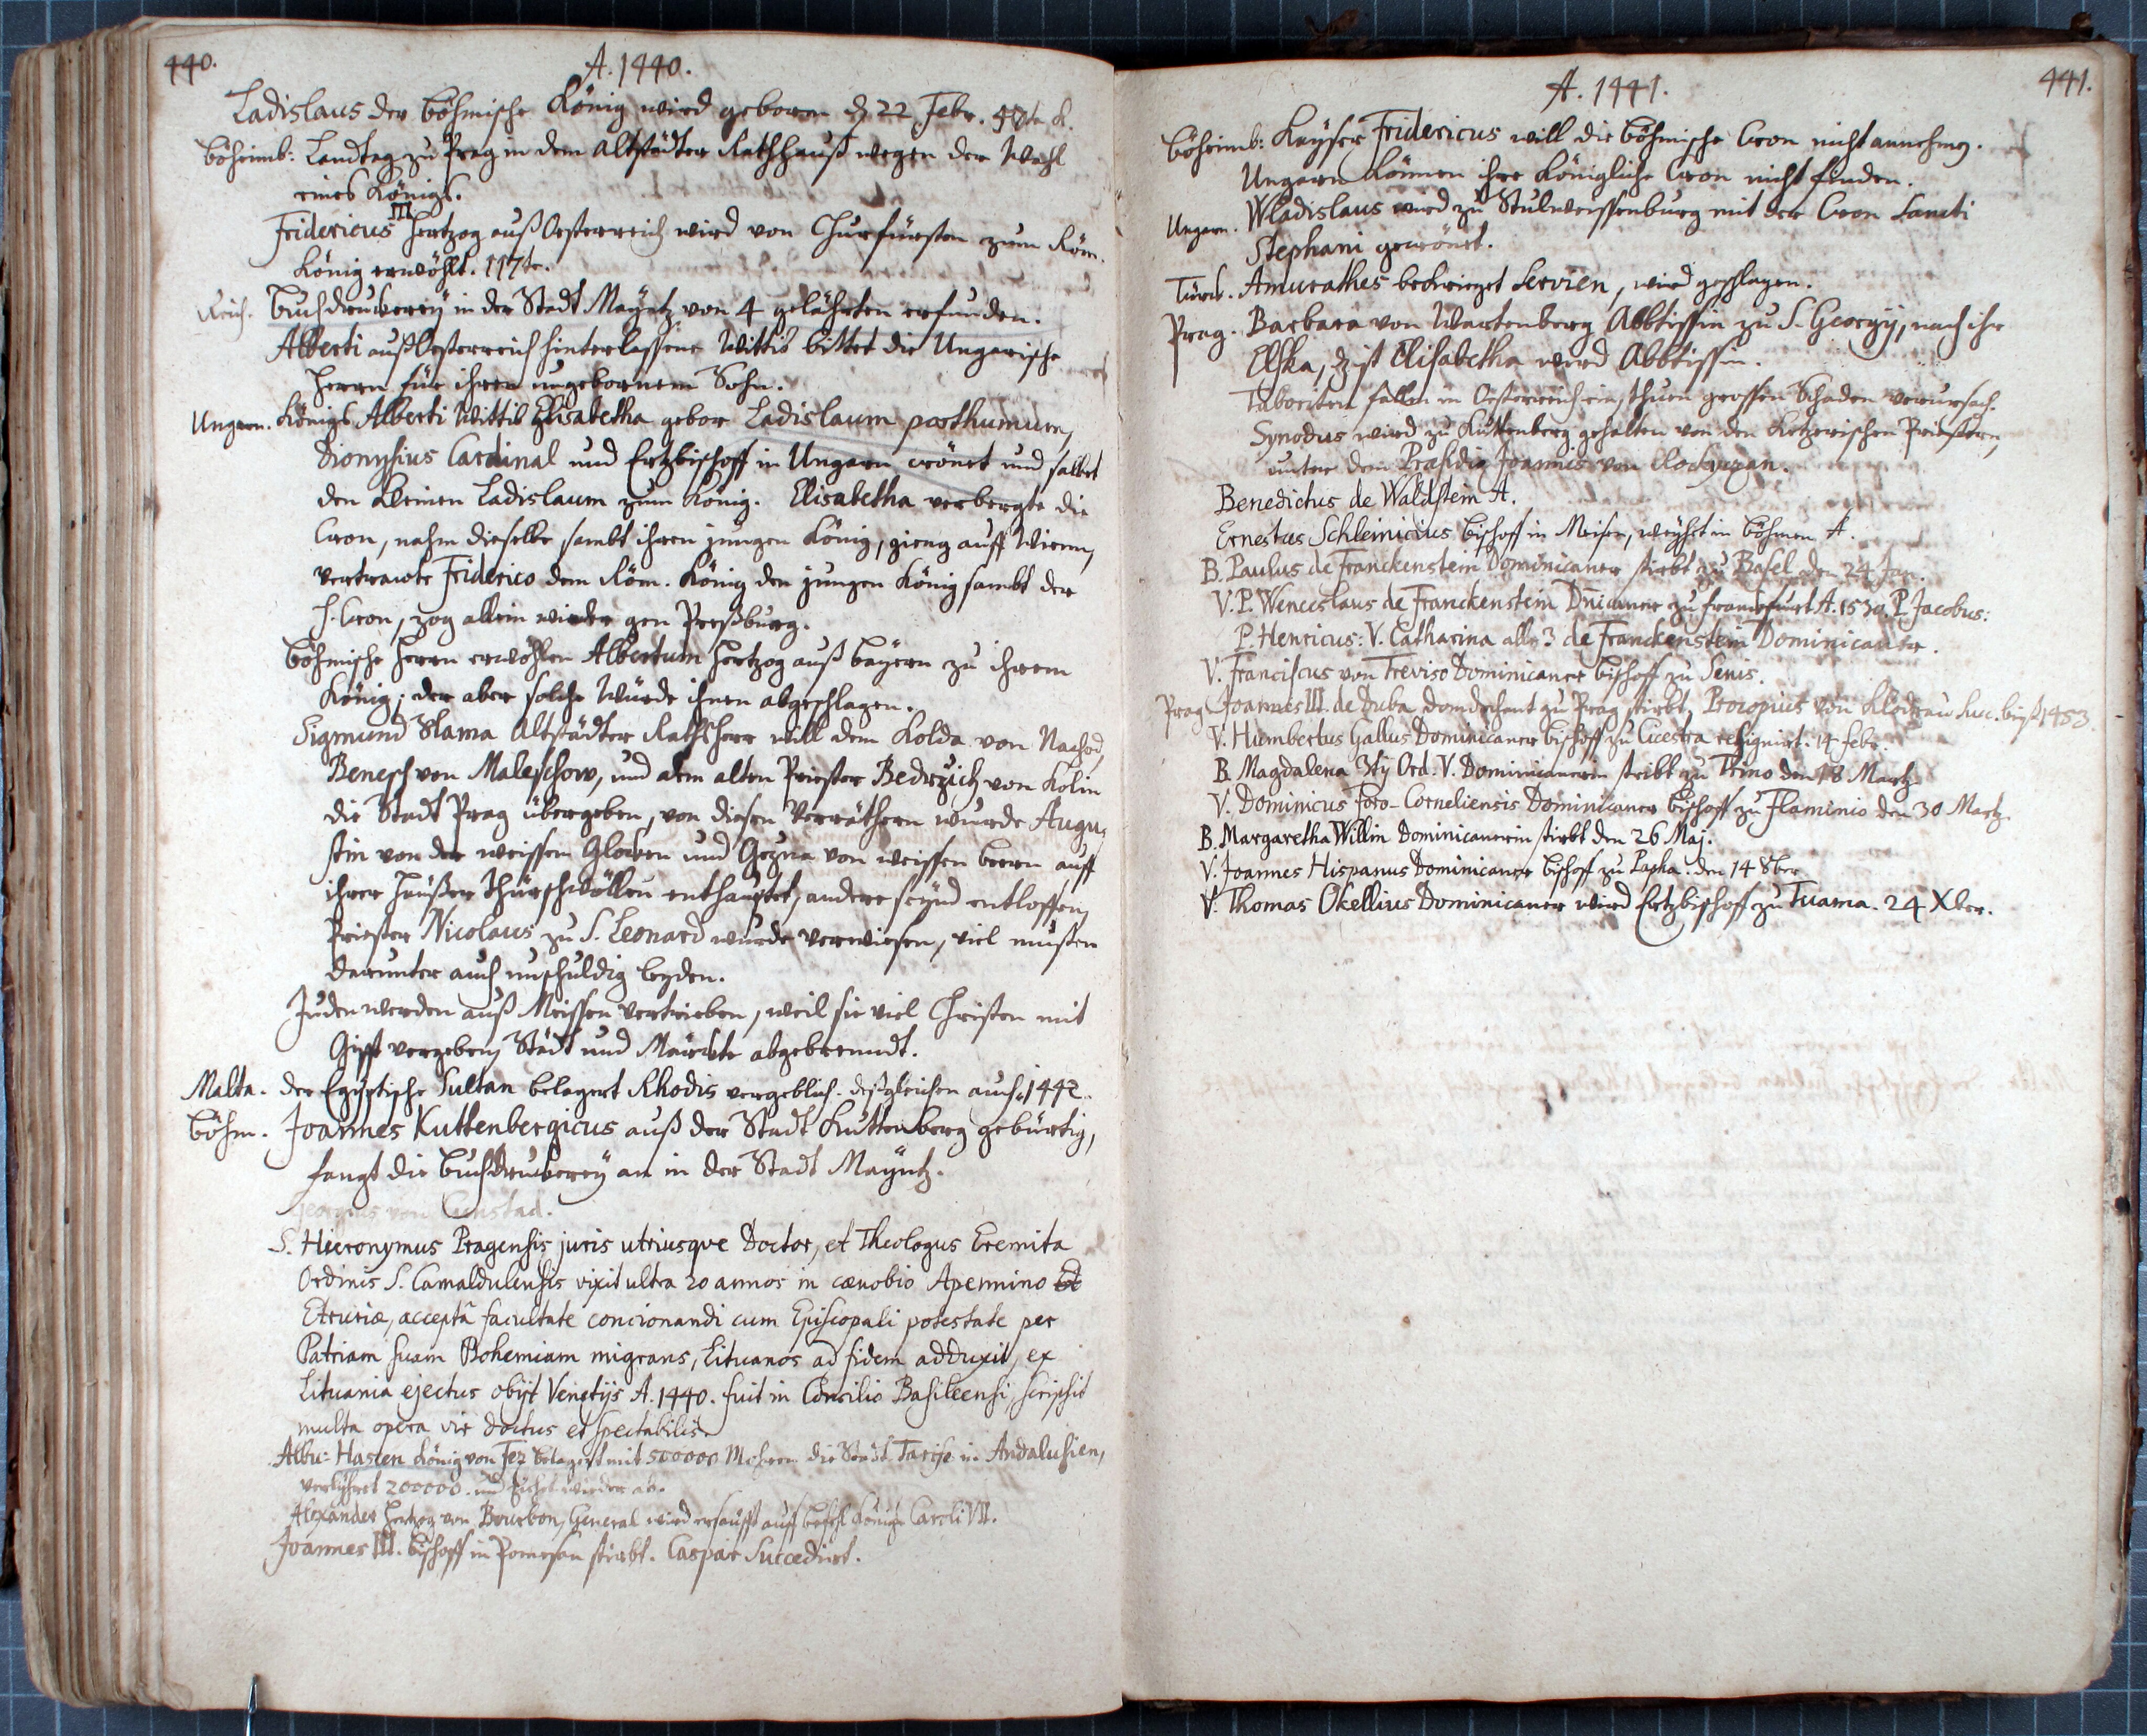 440.
A. 1440.
Ladislaus der böhmische König wird geboren dz 22 Febr.
böheimb: Landtag zu Prag in dem Altstädter Rathhauß wegen der Wahl
eines Königs.
Fridericus III Hertzog auß Oesterreich wird von Churfürsten zum Röm.
König erwöhlt. 117te.
Reich. buchdruckereÿ in der Stadt Maÿntz von 4 gelährten erfunden.
Alberti auß Oesterreich hinterlassene Wittib bittet die Ungarische
Herrn für ihren ungebornem Sohn.
Ungarn. Königs Alberti Wittib Elisabetha gebar Ladislaum posthumum,
Dionysius Cardinal und Ertzbischoff in Ungarn crönet und salbet
den kleinen Ladislaum zum König. Elisabetha verbergte die
Cron, nahm dieselbe sambt ihren jungen König, gieng auff Wienn,
vertrawte Friderico dem Röm. König den jungen König sambt der
H. Cron, zog allein wieder gen Preßburg.
böhmische Herrn erwöhlen Albertum Hertzog auß baÿern zu ihrem
König; der aber solche Würde ihnen abgeschlagen.
Sigmund Slama Altstädter Rathsherr will dem Kolda von Nachod,
Benesch von Maleschow, und dem alten Priester Bedrzich von Kolin
die Stadt Prag übergeben, von diesen Verräthern wurde Augu-
stin von der weissen Glocken und Gczna von weissen beern auff
ihrer Häußer Thürschwöllen enthauptet, andere seÿnd entloffen,
Priester Nicolaus zu S. Leonard wurde verwiesen, viel musten
darunter auch unschuldig leyden.
Juden werden auß Meissen vertrieben, weil sie viel Christen mit
Gifft vergeben, Städt und Märckte abgebrenndt.
Malta. der Egyptische Sultan belagert Rhodis vergeblich. deßgleichen auch 1442.
böhm. Joannes Kuttenbergicus auß der Stadt Kuttenberg gebürtig,
fangt die buchdruckereÿ an in der Stadt Maÿntz.
Georgius von Cunstad.
S. Hieronymus Pragensis juris utriusqve Doctor, et Theologus Eremita
Ordinis S. Camaldulensis vixit ultra 20 annos in cænobio Apennino
Etruriæ, acceptâ facultate concionandi cum Episcopali potestate per
Patriam suam Bohemiam migrans, Lituanos ad fidem adduxit, ex
Lituania ejectus obijt Venetijs A. 1440. fuit in Concilio Basileensi, scripsit
multa opera vir doctus et spectabilis.
Albu-Hasen König von Fez belagert mit 500000 Mohren die Stadt Tariffe in Andalusien,
verlihret 200000. und ziehet wieder ab.
Alexander Hertzog von Bourbon, General wird ersäufft auff befehl Königs Caroli VII.
Joannes III. bischoff in Pomesan stirbt. Caspar Succedirt.
441.
A. 1441.
böheimb: Kaÿser Fridericus will die böhmische Cron nicht annehmen.
Ungarn können ihre Königliche Cron nicht finden.
Ungarn. Wladislaus wird zu Stulweissenburg mit der Cron Sancti
Stephani gecrönet.
Türck. Amurathes bekrieget Servien, wird geschlagen.
Prag. Barbara von Wartenberg Abbtissin zu S. Georgÿ, nach ihr
Elska, dz ist Elisabetha wird Abbtissin.
Taboriten fallen in Oesterreich ein, thuen grossen Schaden verursach.
Synodus wird zu Kuttenberg gehalten von den ketzerischen Priestern,
unter dem Præsidio Joannis von Rockyczan.
Benedictus de Waldstein A.
Ernestus Schleinicius bischoff in Meisen, weÿhet in böhmen A.
B. Paulus de Franckenstein Dominicaner stirbt zu Basel den 24 Jan.
V. P. Wenceslaus de Franckenstein Dnicaner zu franckfurt A. 1530. P. Jacobus:
P. Henricus: V. Catharina alle 3 de Franckenstein Dominicaner.
V. Franciscus von Treviso Dominicaner bischoff zu Senis.
Prag Joannes III. de Duba Domdechant zu Prag stirbt, Procopius von Kladrau Suc. biß 1453.
V. Humbertus Gallus Dominicaner bischoff zu Cicestra resignirt. 14 febr.
B. Magdalena 3tÿ Ord. V. Dominicanerin stirbt zu Trino den 18 Martz.
V. Dominicus Foro-Corneliensis Dominicaner bischoff zu Flaminio den 30 Martz.
B. Margaretha Willin Dominicanerin stirbt den 26 Maj.
V. Joannes Hispanus Dominicaner bischoff zu Papha. den 14 8ber
V. Thomas Okellius Dominicaner wird Ertzbischoff zu Tuama. 24 Xber.